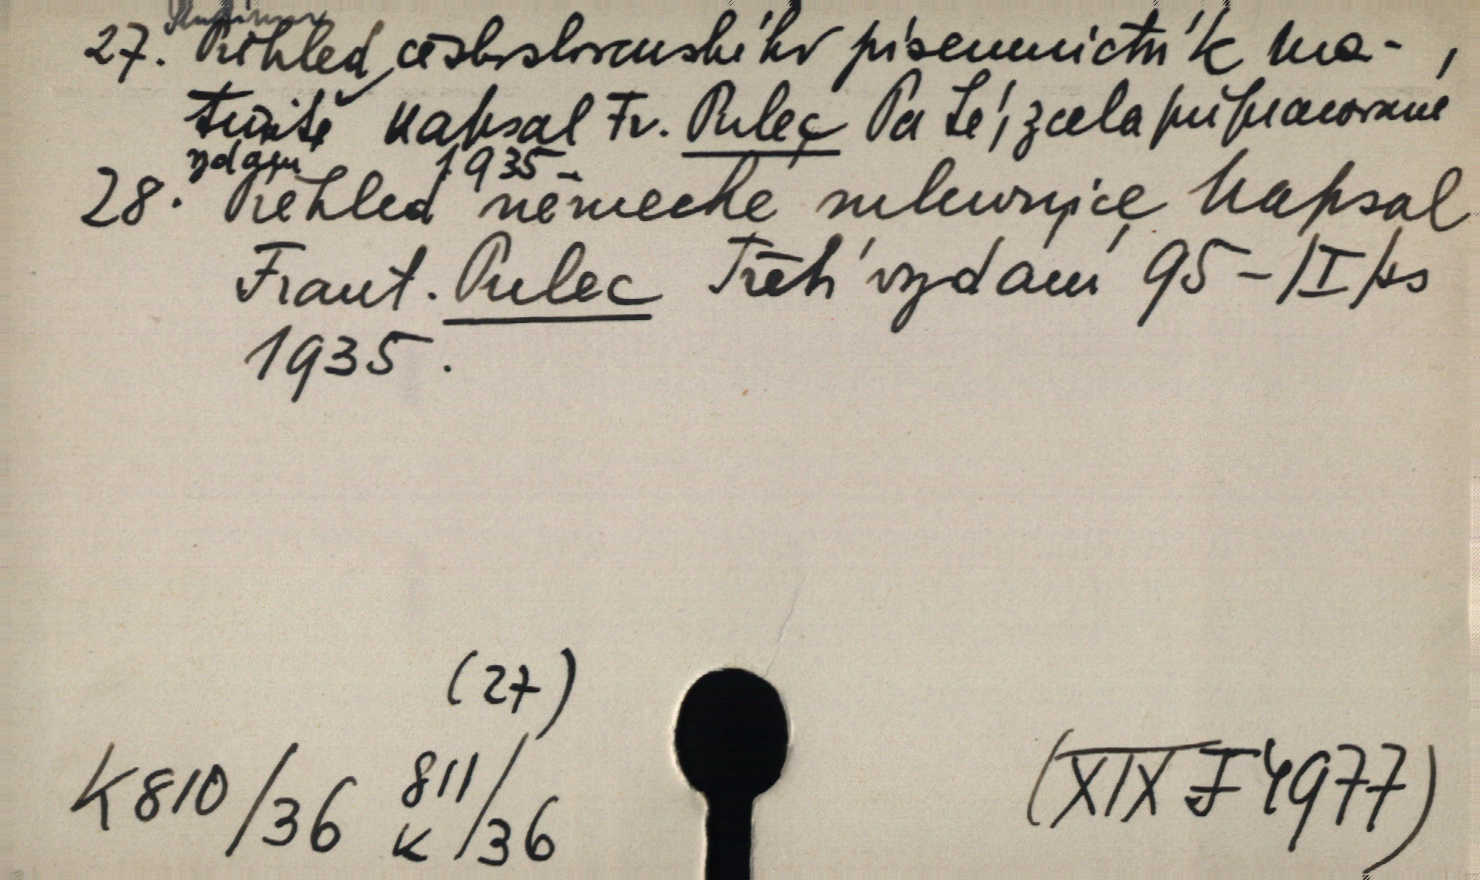 27. Přehled československého písemnictví k ma-
turitě napsal Fr. Pulec Páté, zcela přepracované
vydání 1935 -
28. Přehled německé mluvnice Napsal
Frant. Pulec Třetí vydání 95 - /I/ s
1935.
(27)
K810/36 811/36
K
(XIX J 4977)